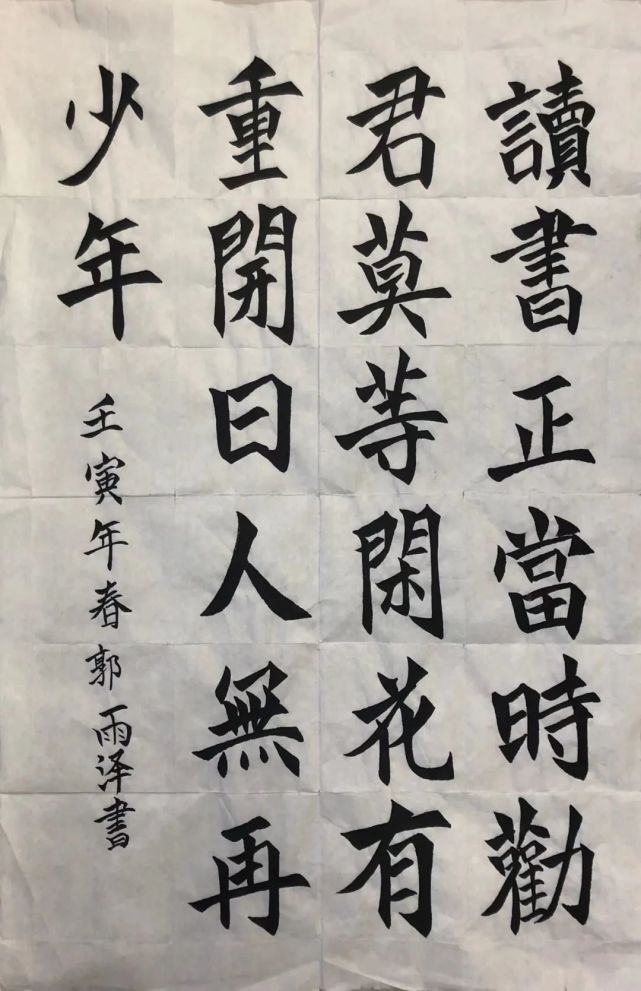 讀書正當時勸
君莫等閑花有
重開日人無再
少年
壬寅年春郭雨泽書